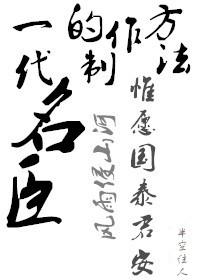 一代名臣
的制作方法
风雨侵山河
惟愿国泰君安
半空住人